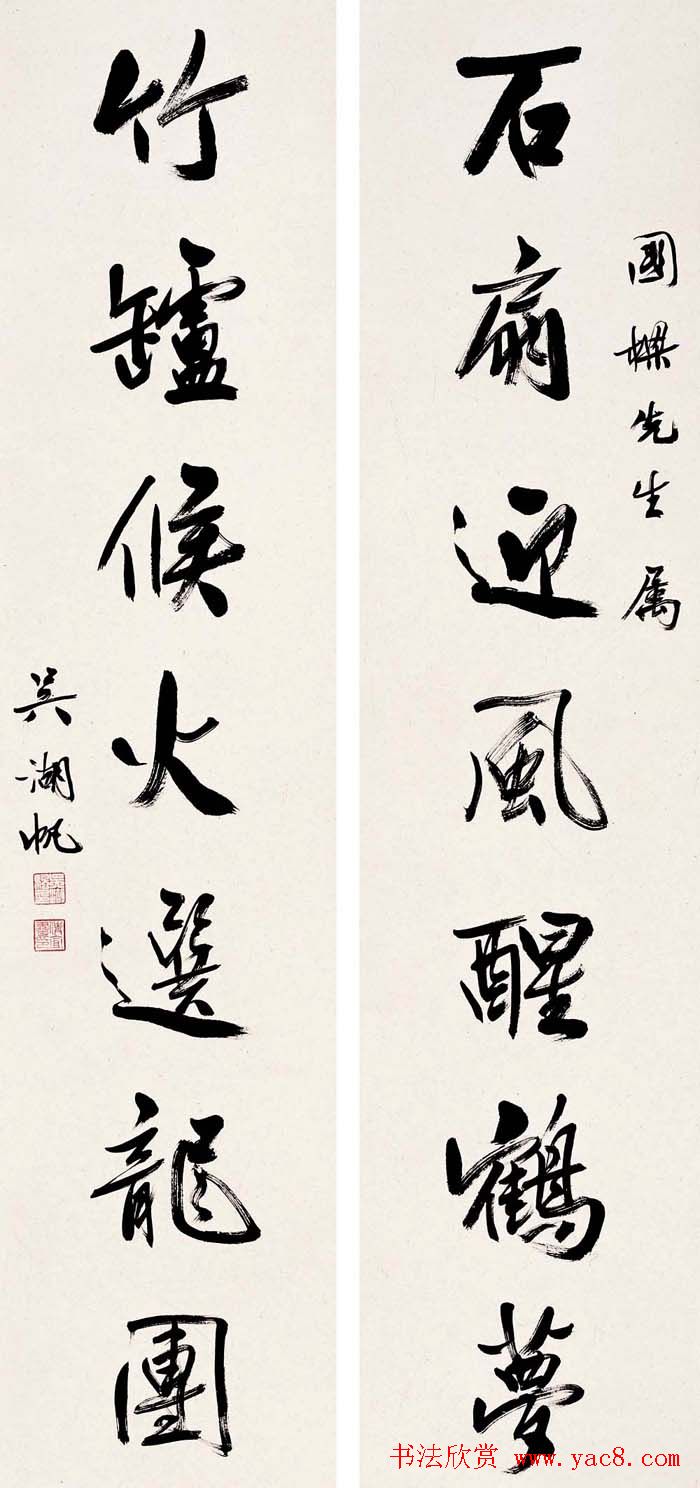 國樑先生属
石扇迎風醒鶴夢
竹罏候火選龍團
吳湖帆
书法欣赏 www.yac8.com